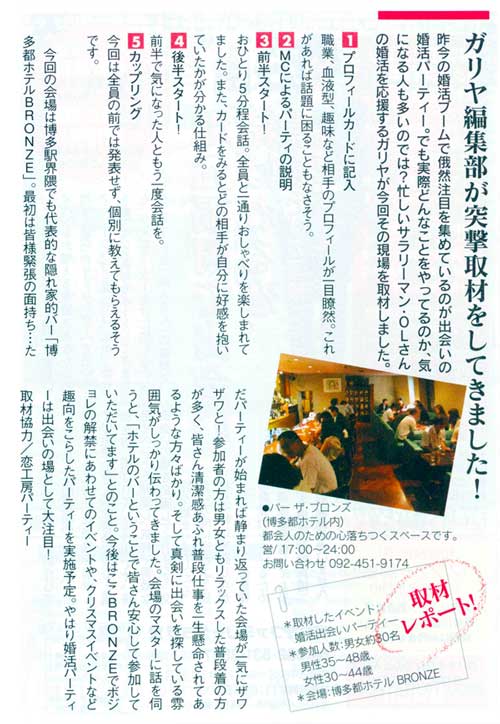 ガリヤ編集部が突撃取材をしてきました！
昨今の婚活ブームで俄然注目を集めているのが出会いの
婚活パーティー。でも実際どんなことをやってるのか、気
になる人も多いのでは？忙しいサラリーマン・OLさん
の婚活を応援するガリヤが今回その現場を取材しました。
1 プロフィールカードに記入
職業、血液型、趣味など相手のプロフィールが一目瞭然。これ
があれば話題に困ることもなさそう。
2 MCによるパーティの説明
3 前半スタート！
おひとり5分程会話。全員と一通りおしゃべりを楽しまれて
ました。また、カードをみるとどの相手が自分に好感を抱い
ていたかが分かる仕組み。
4 後半スタート！
前半で気になった人ともう一度会話を。
5 カップリング
今回は全員の前では発表せず、個別に教えてもらえるそう
です。
今回の会場は博多駅界隈でも代表的な隠れ家的バー「博
多都ホテルBRONZE」。最初は皆様緊張の面持ち…た
だパーティーが始まれば静まり返っていた会場が一気にザワ
ザワと！参加者の方は男女ともリラックスした普段着の方
が多く、皆さん清潔感あふれ普段仕事を一生懸命されてあ
るような方々ばかり。そして真剣に出会いを探している雰
囲気がしっかり伝わってきました。会場のマスターに話を伺
うと、「ホテルのバーということで皆さん安心して参加して
いただいてます」とのこと。今後はここBRONZEでボジ
ョレの解禁にあわせてのイベントや、クリスマスイベントなど
趣向をこらしたパーティーを実施予定。やはり婚活パーティ
ーは出会いの場として大注目！
取材協力／恋工房パーティー
●バー ザ・ブロンズ
(博多都ホテル内)
都会人のための心落ちつくスペースです。
営/ 17:00〜24:00
お問い合わせ 092-451-9174
取材
レポート！
＊取材したイベント：
婚活出会いパーティー
＊参加人数：男女約30名
男性35〜48歳、
女性30〜44歳
＊会場：博多都ホテル BRONZE